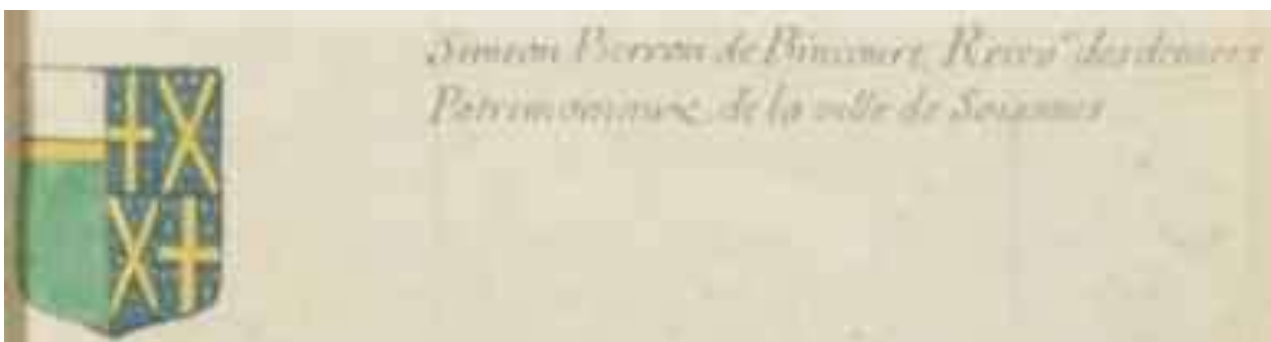 Simeon Pierron de Bincourt, Recevr des deniers
Patrimoniaux de la ville de Soissons